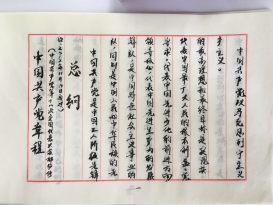 中国共产党章程
(中国共产党第十八次全国代表大会部分修
总纲
中国共产党是中国工人阶级的先锋
队,同时是中国人民和中华民族的先
锋队,是中国特色社会主义事业的
领导核心,代表中国先进生产力的发展
要求,代表中国先进文化的前进方
向,代表中国最广大人民的根本利益。党
的最高理想和最终目标是实现共
产主义。
中国共产党以马克思列宁主义